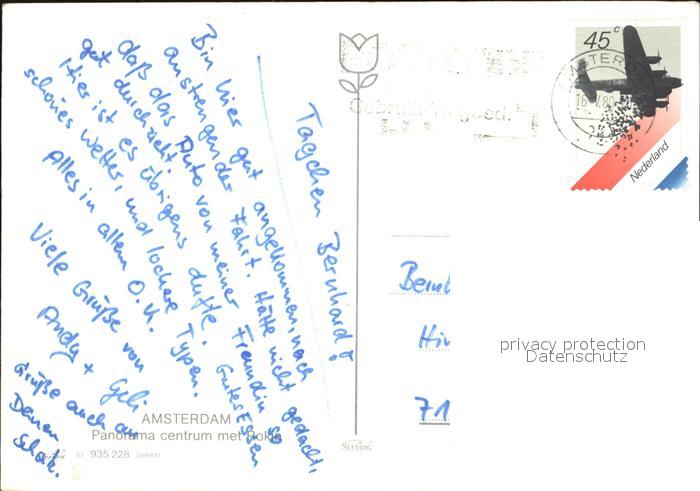 Tagchen Bernhard!
Bin hier gut angekommen, nach
anstrengender Fahrt. Hätte nicht gedacht,
daß das Auto von meiner Freundin so
gut durchzieht.
Hier ist es übrigens dufte. Gutes Essen
schönes Wetter, und lockere Typen.
Alles in allem O.K.
Viele Grüße von
Andy + Geli
Grüße auch an
Deinen
Schatz.
AMSTERDAM
Panorama centrum met Rokin
51 935.228 269931
SLEDING
Gebruik goed.
45 c
AMSTERD
80
Nederland
Bernh
Hin
71
privacy protection
Datenschutz